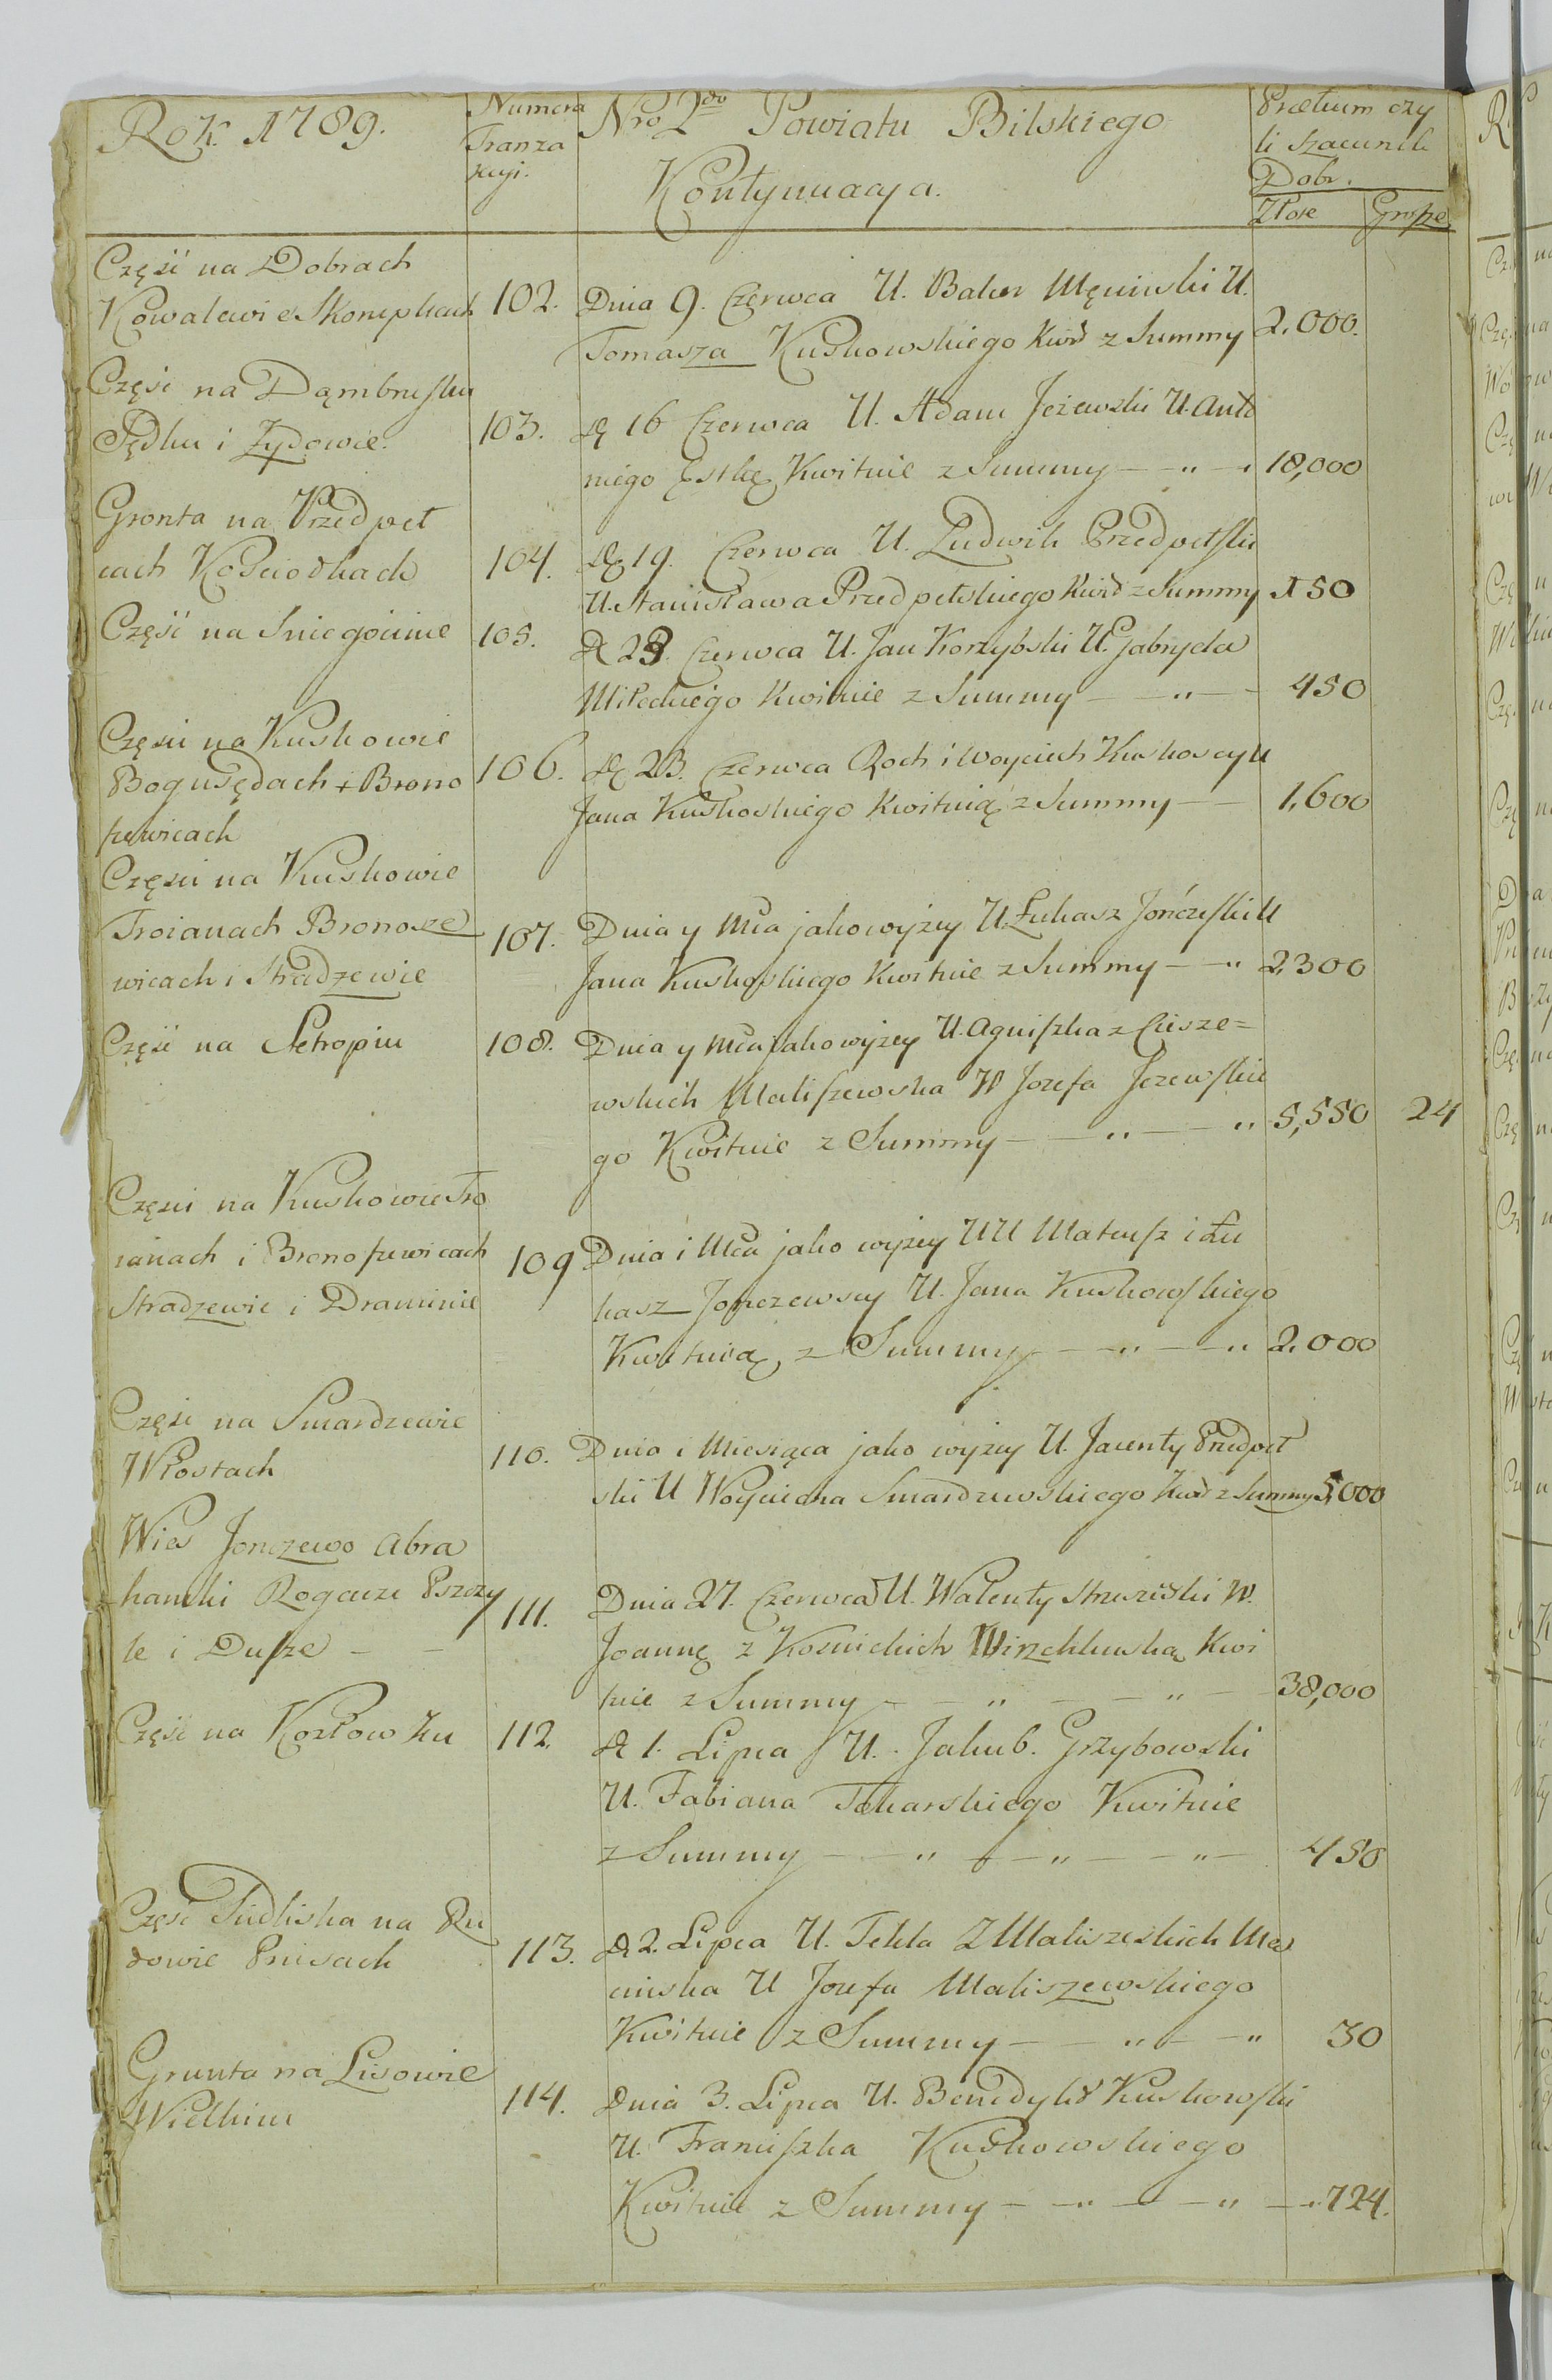 Rok 1789.
Numera
Tranza
kcyi.
Nro 2do Powiatu Bilskiego
Kontynuacya.
Prætium czy
li szacunek
Dobr.
Złote Grosze
Część na Dobrach
Kowalewie Skorupkach
102.
Dnia 9. Czerwca U. Balcer Męciński U.
Tomasza Kuskowskiego Kwit z Summy
2,000.
Części na Dąmbrusku
Pędku i Żydowie.
103.
D. 16 Czerwca U. Adam Jeżewski U. Anto
niego Estkę Kwituie z Summy — " — "
18,000
Gronta na Przedpeł
cach Kościodkach
104.
D. 19. Czerwca U. Ludwik Przedpełski
U. Stanisława Przedpełskiego Kwit z Summy
150
Część na Sniegocinie
105.
D 23. Czerwca U. Jan Korzybski U. Gabryela
Miłeckiego Kwituie z Summy — — " — —
450
Części na Kuskowie
Bogusędach i Brono
szewicach
106.
D. 23. Czerwca Roch i Woyciech Kuskoscy U
Jana Kuskoskiego Kwituią z Summy — —
1,600
Części na Kuskowie
Troianach Bronosze
wicach i Stradzewie
107.
Dnia y Mca jako wyżey U. Łukasz Jończeski U
Jana Kuskoskiego Kwituie z Summy — — "
2,300
Część na Setropiu
108.
Dnia y Mca jako wyżey U. Agniszka z Ciesze=
wskich Maliszewska W Jozefa Jezewskie
go Kwituie z Summy — — " — — "
5,550 24
Części na Kuskowie Tro
ianach i Bronoszewicach
Stradzewie i Draminie
109
Dnia i Mca jako wyżey UU Mateusz i Łu
kasz Jonczewscy U. Jana Kuskowskiego
Kwituią z Summy — — " — — "
2,000
Części na Smardzewie
Włostach
110.
Dnia i Miesiąca jako wyżey U. Jacenty Przedpeł
ski U Woyciecha Smardzewskiego Kwit z Summy
5,000
Wies Jonczewo Abra
hamki Rogacze Pszczy
le i Dusze — —
111.
Dnia 27. Czerwca U. Walenty W.
Joannę z Kosnickich Kwi
tuie z Summy — — " — — " —
38,000
Część na Kozłowku
112.
D 1. Lipca U. Jakub. Grzybowski
U. Fabiana Tokarskiego Kwituie
z Summy — — " — — " — — " —
450
Część Siedliska na Ru
dowie Pnisach
113.
D 2. Lipca U. Tekla Z Maliszeskich Me
cinska U Jozefa Maliszewskiego
Kwituie z Summy — — " — — "
30
Grunta na Lisowie
Wielkim
114.
Dnia 3. Lipca U. Benedykt Kuskowski
U. Franciszka Kuskowskiego
Kwituie z Summy — — " — — " — "
724.